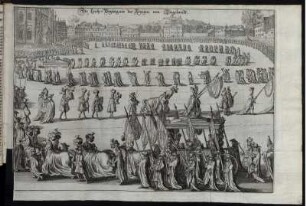 Die Leich-Begängnus der Königin von Engelandt.